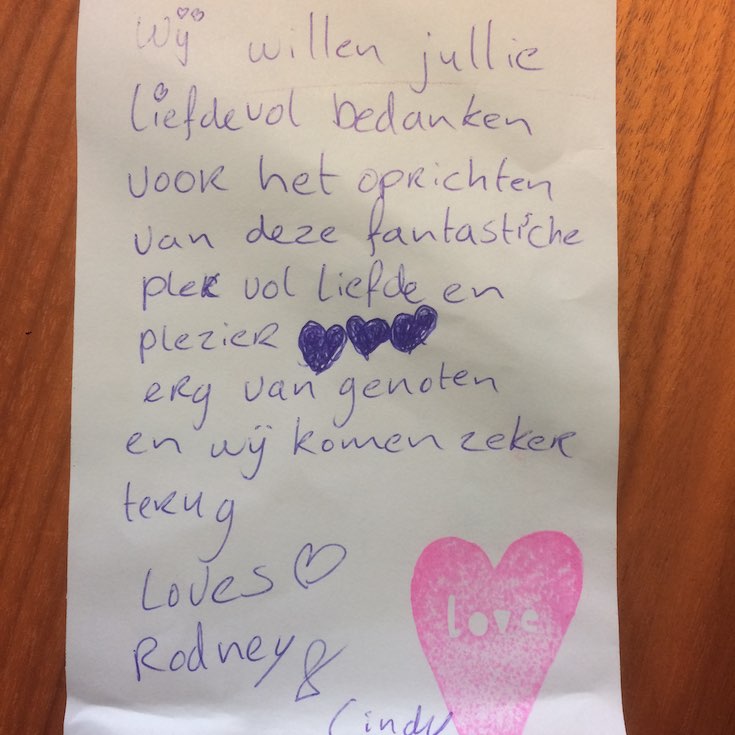 Wij willen jullie
liefdevol bedanken
voor het oprichten
van deze fantastiche
plek vol liefde en
plezier
erg van genoten
en wij komen zeker
terug
Loves
Rodney &
Cindy
love